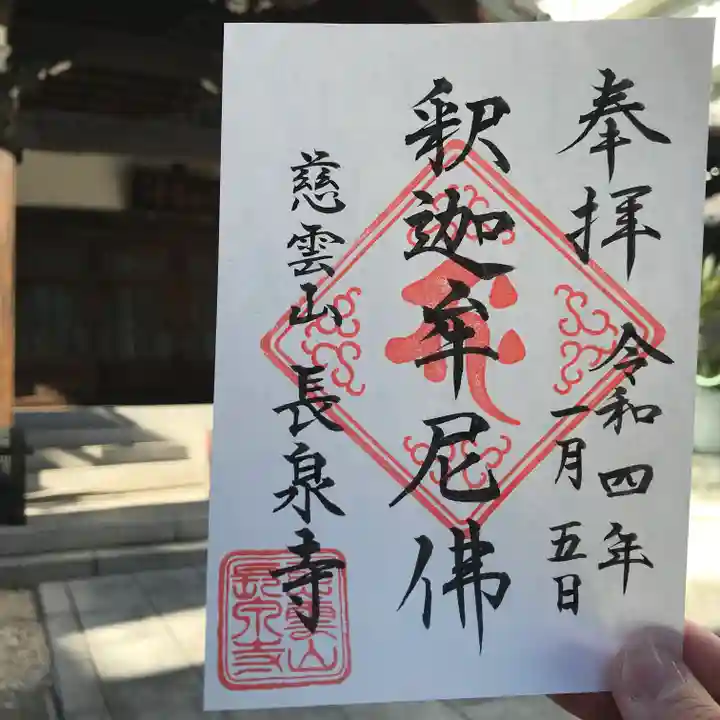 奉拝
令和四年
一月五日
釈迦牟尼佛
慈雲山 長泉寺
慈雲山
長泉寺